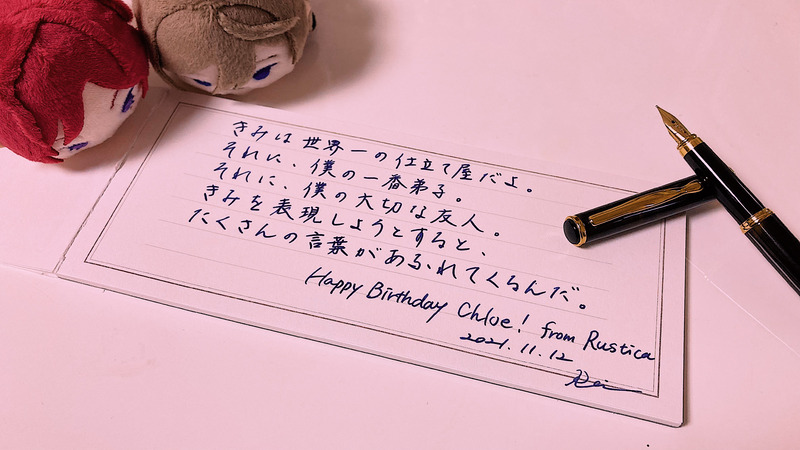 きみは世界一の仕立て屋だよ。
それに、僕の一番弟子。
それに、僕の大切な友人。
きみを表現しようとすると、
たくさんの言葉があふれてくるんだ。
Happy Birthday Chloe! from Rustica
2021.11.12